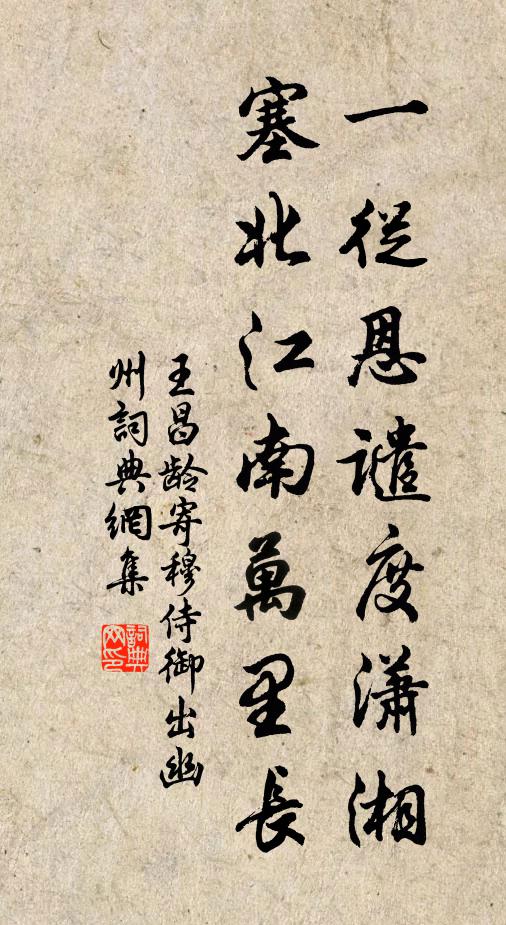 一從恩譴度瀟湘
塞北江南萬里長
王昌齡寄穆侍御出幽
州詞典網集
詞典網印